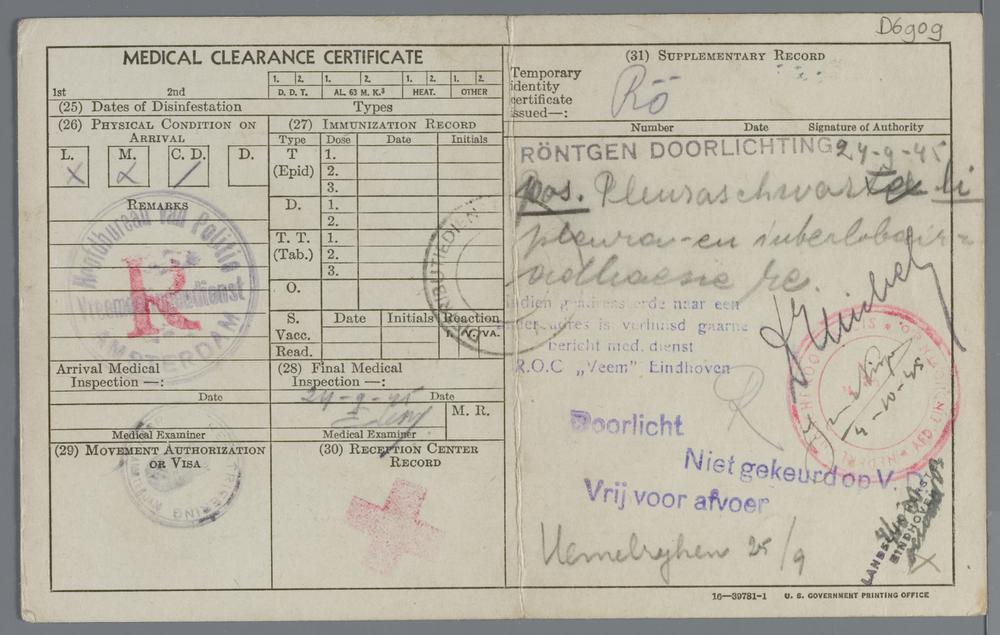 D6909
MEDICAL CLEARANCE CERTIFICATE
1. 2. 1. 2. 1. 2. 1. 2.
1st 2nd D. D. T. AL. 63 M. K.³ HEAT. OTHER
(25) Dates of Disinfestation Types
(26) Physical Condition on Arrival
L. M. C. D. D.
x x /
Remarks
Hoofdbureau van Politie
Vreemdelingendienst
AMSTERDAM
R
(27) Immunization Record
Type Dose Date Initials
T (Epid) 1.
2.
3.
D. 1.
2.
T. T. (Tab.) 1.
2.
3.
O.
S. Date Initials Reaction
Vacc. I. N. VA.
Read.
Arrival Medical Inspection —:
Date
Medical Examiner
(28) Final Medical Inspection —:
24-9-45 Date
M. R.
Medical Examiner
(29) Movement Authorization or Visa
(30) Reception Center Record
(31) Supplementary Record
Temporary identity certificate issued—:
Rö
Number Date Signature of Authority
RÖNTGEN DOORLICHTING 24-9-45
pos. Pleuraschwarte li
pleura- en interlobair-
adhaesie re.
Indien geadresseerde naar een
ander adres is verhuisd gaarne
bericht med. dienst
R.O.C „Veem” Eindhoven
R
4-10-45
Doorlicht
Niet gekeurd op V.D.
Vrij voor afvoer
25/9
EINDHOVEN
16—39781-1 U. S. GOVERNMENT PRINTING OFFICE